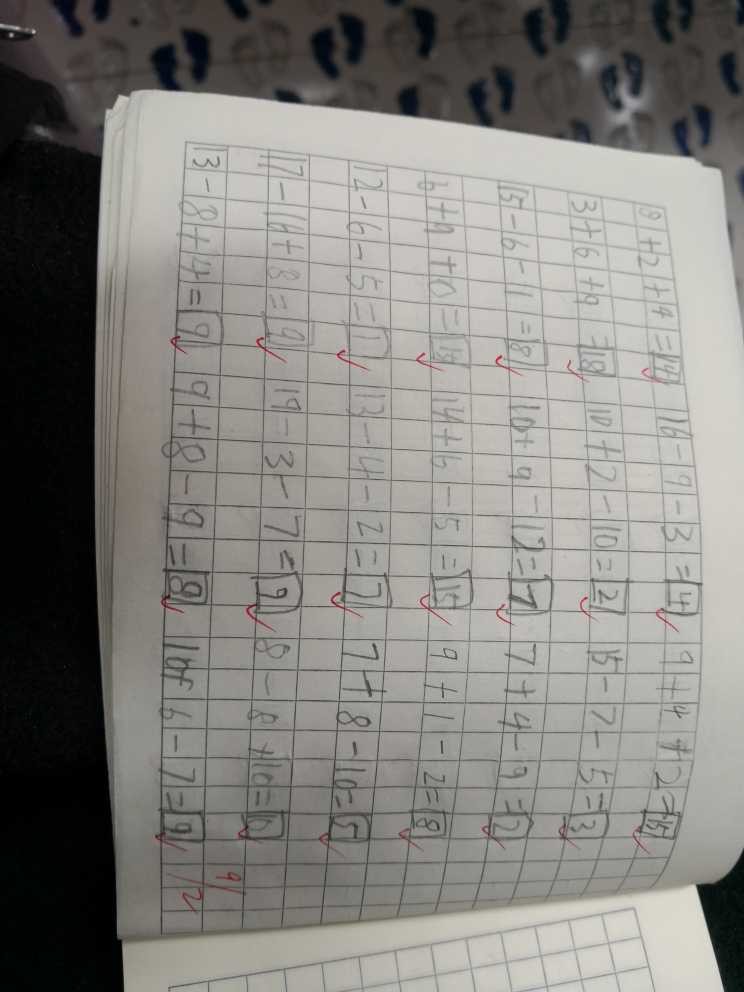 8+2+4=14 16-9-3=4 9+4+2=15
3+6+9=18 10+2-10=2 15-7-5=3
15-6-1=8 10+9-12=7 7+4-9=2
14+6-5=15 9+1-2=8
12-6-5=1 13-4-2=7 7+8-10=5
17-16+8=9 19-3-7=9 8-8+10=10
13-8+4=9 9+8-9=8 10+6-7=9
9/12